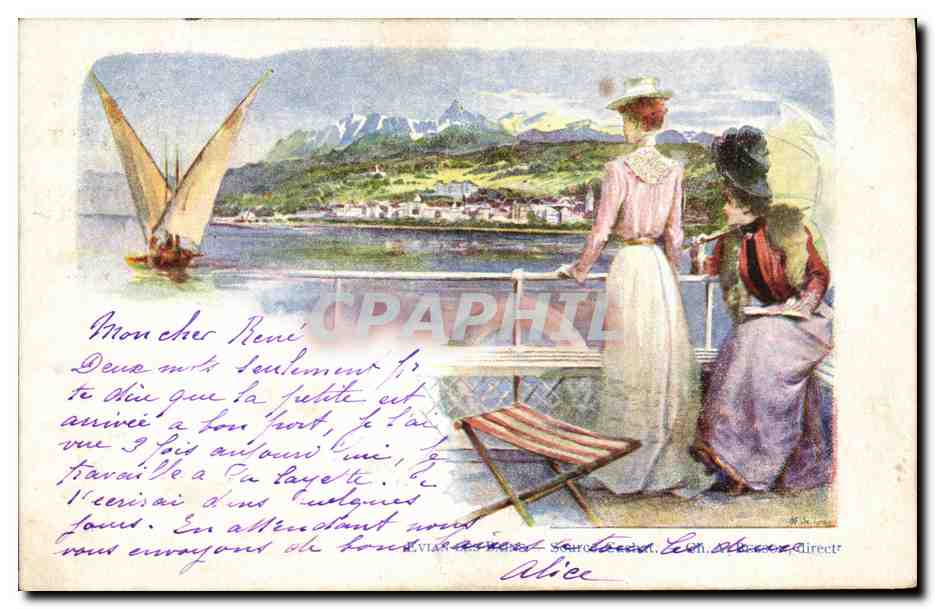 CPAPHIL
Mon cher René
Deux mots seulement pr
te dire que la petite est
arrivée a bon port, je l'ai
vue 3 fois aujourd'hui, je
travaille a la layette. Je
t'ecrirai dans quelques
jours. En attendant nous
vous envoyons de bons baisers a tous les deux
EVIAN-LES-BAINS — Source Cachat. Ch. direct
Alice